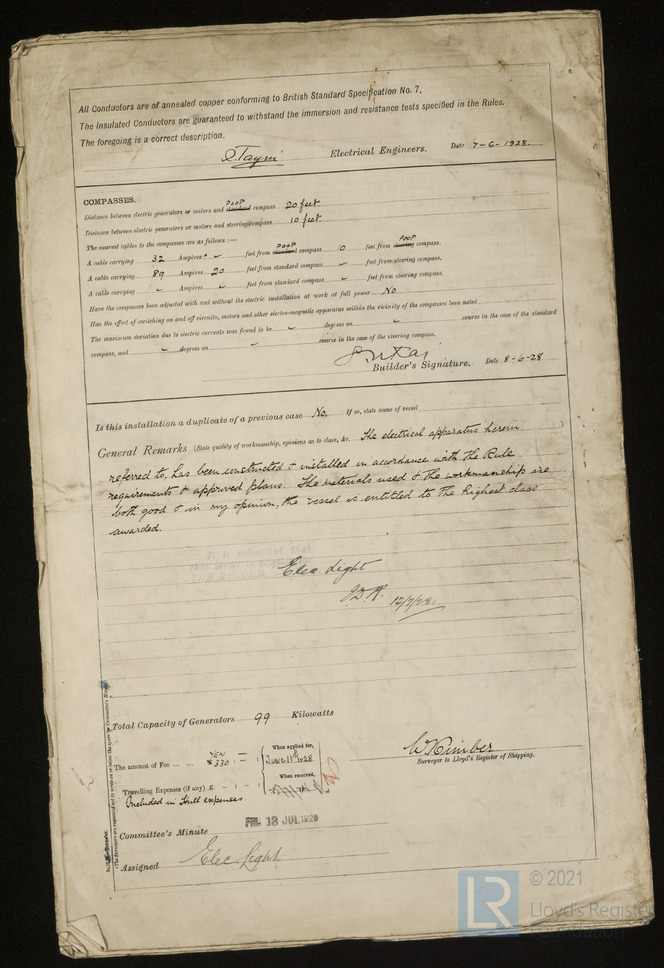 All Conductors are of annealed copper conforming to British Standard Specification No. 7.
The Insulated Conductors are guaranteed to withstand the immersion and resistance tests specified in the Rules.
The foregoing is a correct description.
Electrical Engineers. Date 7-6-1928.
COMPASSES.
POOP
Distance between electric generators or motors and standard compass 20 feet
Distance between electric generators or motors and steering compass 10 feet
The nearest cables to the compasses are as follows:—
POOP POOP
A cable carrying 32 Ampères feet from standard compass 10 feet from steering compass.
A cable carrying 89 Ampères 20 feet from standard compass feet from steering compass.
A cable carrying Ampères feet from standard compass feet from steering compass.
Have the compasses been adjusted with and without the electric installation at work at full power No
Has the effect of switching on and off circuits, motors and other electro-magnetic apparatus within the vicinity of the compasses been noted
The maximum deviation due to electric currents was found to be degrees on course in the case of the standard
compass, and degrees on course in the case of the steering compass.
Builder's Signature. Date 8-6-28
Is this installation a duplicate of a previous case No. If so, state name of vessel
General Remarks (State quality of workmanship, opinions as to class, &c. The electrical apparatus herein
referred to, has been constructed & installed in accordance with the Rule
requirements & approved plans. The materials used & the workmanship are
both good & in my opinion, the vessel is entitled to the highest class
awarded.
Elec. Light
12/7/28
Total Capacity of Generators 99 Kilowatts
YEN
The amount of Fee ... ... 330 : — : When applied for, June 11th 1928
When received,
Travelling Expenses (if any) £
Included in Hull expenses
W Kimber
Surveyor to Lloyd's Register of Shipping.
FRI. 13 JUL 1928
Committee's Minute
Assigned Elec Light
LR © 2021
Lloyd's Register
Foundation